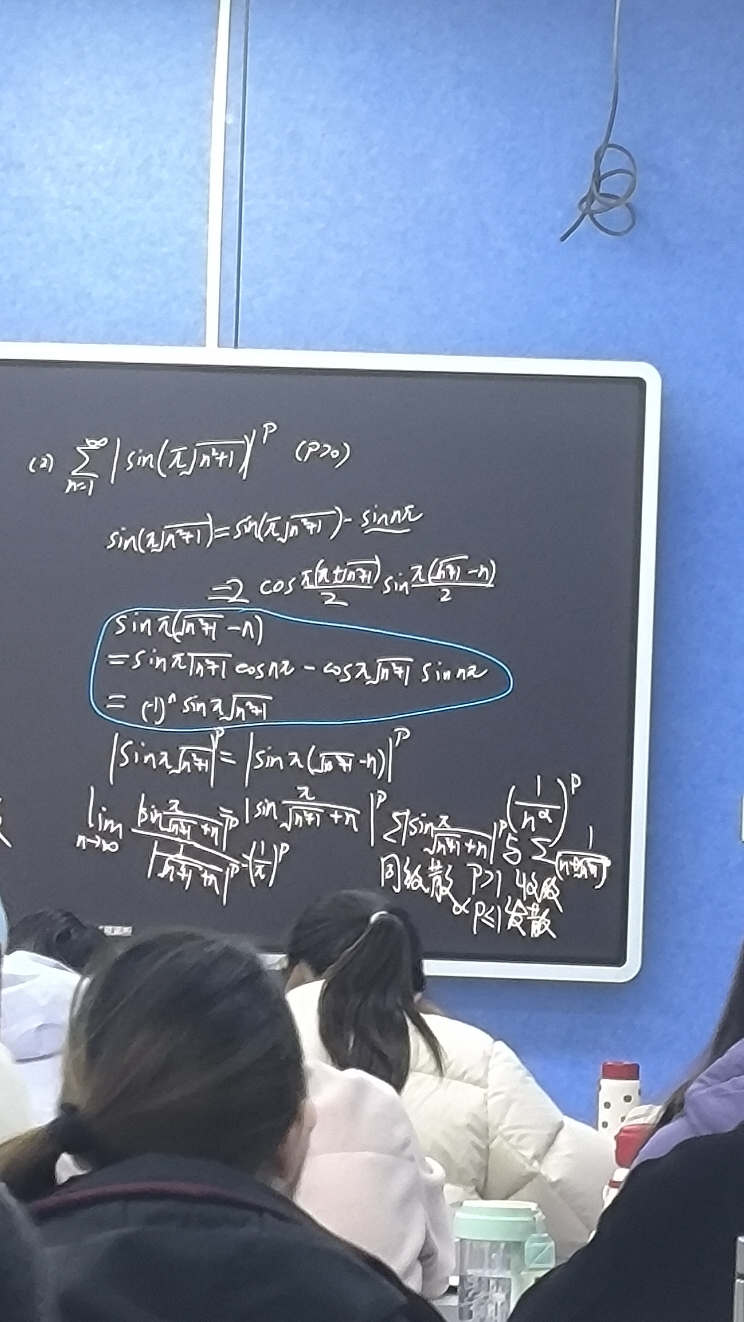 (2) ∞ Σ n=1 |sin(π√n²+1)|^p (p>0)
sin(π√n²+1) = sin(π√n²+1) - sin nπ
= 2 cos π(n+√n²+1)/2 sin π(√n²+1 -n)/2
sin π(√n²+1 -n)
= sin π√n²+1 cos nπ - cos π√n²+1 sin nπ
= (-1)^n sin π√n²+1
|sin π√n²+1|^p = |sin π(√n²+1 -n)|^p
= |sin π/(√n²+1 +n)|^p
lim n→∞ |sin π/(√n²+1 +n)|^p / |1/(√n²+1 +n)|^p = (1/π)^p
Σ|sin π/(√n²+1 +n)|^p 与 Σ
(1/n^α)^p
p>1 收敛
p≤1 发散